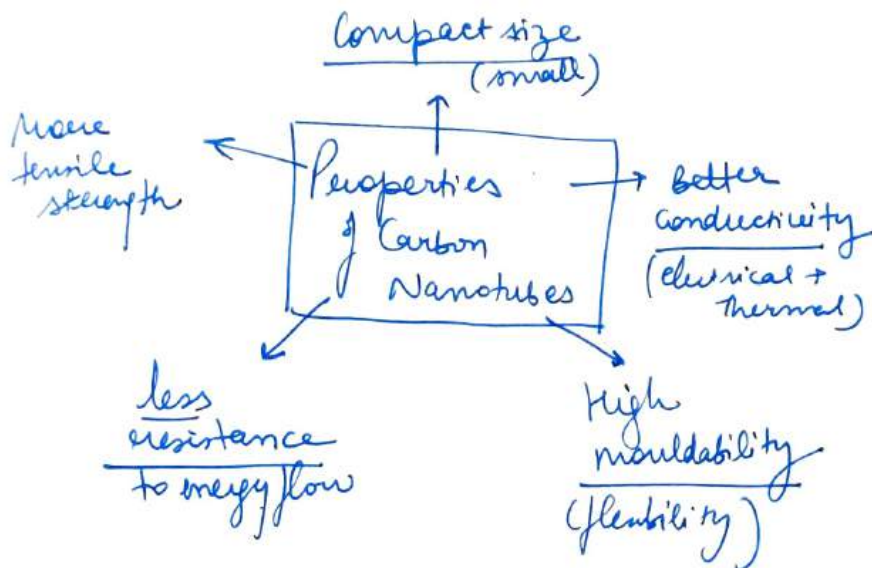 Compact size
(small)
More
tensile
strength
Properties
of Carbon
Nanotubes
Better
conductivity
(electrical +
thermal)
less
resistance
to energy flow
High
mouldability
(flexibility)